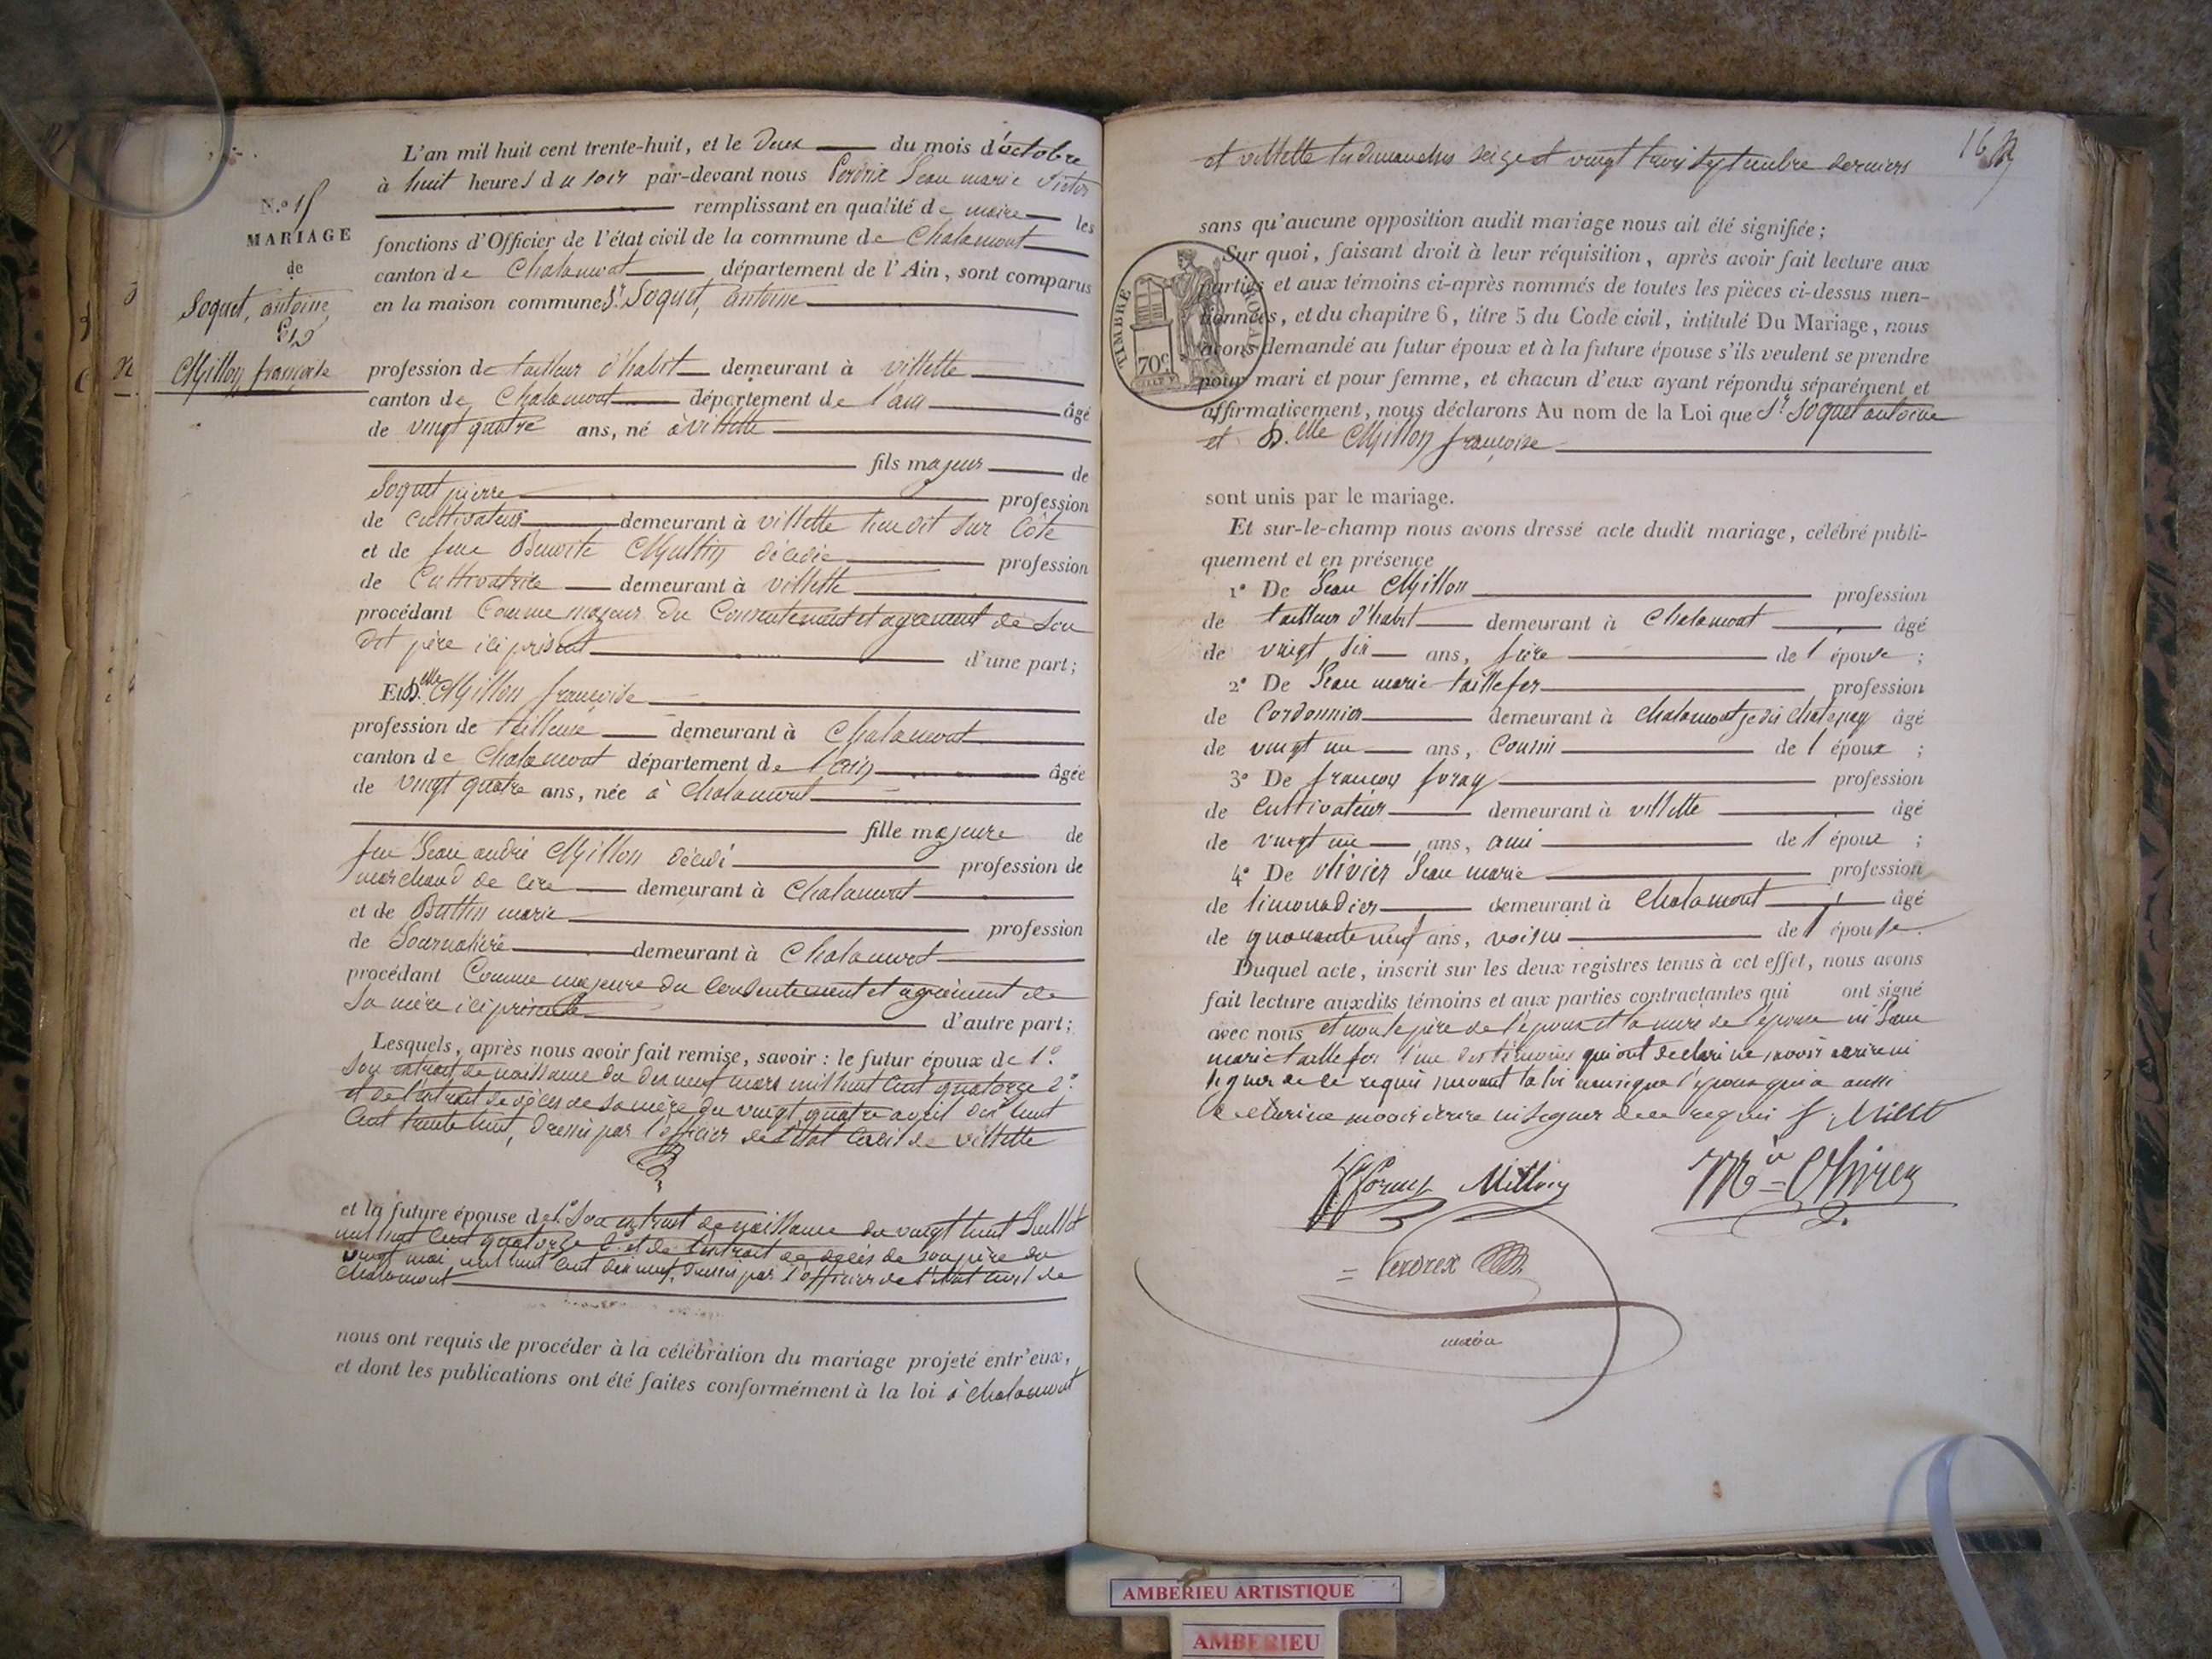 L'an mil huit cent trente-huit, et le Deux du mois d'octobre
à huit heures du soir par-devant nous Perdrix Jean marie Victor
remplissant en qualité de maire les
fonctions d'Officier de l'état civil de la commune de Chalamont
canton de Chalamont département de l'Ain, sont comparus
en la maison commune Sr. Soquet, antoine
N.o 15
MARIAGE
de
Soquet, antoine
Et D
Millon françoise
profession de tailleur d'habit demeurant à villette
canton de Chalamont département de l'ain âgé
de vingt quatre ans, né à villette
fils majeur de
Soquet pierre profession
de cultivateur demeurant à villette lieu dit sur Côte
et de feue Benoite décédée profession
de Cultivatrice demeurant à villette
procédant Comme majeur du Consentement et agrément de son
dit père ici présent d'une part;
Et D.elle Millon françoise
profession de tailleuse demeurant à Chalamont
canton de Chalamont département de l'ain âgée
de vingt quatre ans, née à Chalamont
fille majeure de
feu Jean andré Millon décédé profession de
marchand de cire demeurant à Chalamont
et de Buttin marie profession
de Journalière demeurant à Chalamont
procédant Comme majeure du Consentement et agrément de
sa mère ici présente d'autre part;
Lesquels, après nous avoir fait remise, savoir: le futur époux de 1°.
son extrait de naissance du dix neuf mars mil huit Cent quatorze 2°.
et de l'extrait de décès de sa mère du vingt quatre avril dix huit
Cent trente huit, dressés par l'officier de l'état Civil de villette
et la future épouse de 1° son extrait de naissance du vingt huit Juillet
mil huit Cent quatorze 2. et de l'extrait de décès de son père du
vingt mai mil huit Cent dix neuf, dressés par l'officier de l'état civil de
Chalamont
nous ont requis de procéder à la célébration du mariage projeté entr'eux,
et dont les publications ont été faites conformément à la loi à Chalamont
16
et villette les dimanches seize et vingt trois septembre derniers
sans qu'aucune opposition audit mariage nous ait été signifiée;
Sur quoi, faisant droit à leur réquisition, après avoir fait lecture aux
parties et aux témoins ci-après nommés de toutes les pièces ci-dessus men-
tionnées, et du chapitre 6, titre 5 du Code civil, intitulé Du Mariage, nous
avons demandé au futur époux et à la future épouse s'ils veulent se prendre
pour mari et pour femme, et chacun d'eux ayant répondu séparément et
affirmativement, nous déclarons Au nom de la Loi que Sr Soquet antoine
et D.elle Millon françoise
TIMBRE ROYAL
70c
sont unis par le mariage.
Et sur-le-champ nous avons dressé acte dudit mariage, célébré publi-
quement et en présence
1° De Jean Millon profession
de tailleur d'habit demeurant à Chalamont âgé
de vingt six ans, frère de l'épouse;
2° De Jean marie taillefer profession
de Cordonnier demeurant à Chalamont je dis Chatenay âgé
de vingt un ans, Cousin de l'époux;
3° De françois foray profession
de Cultivateur demeurant à villette âgé
de vingt un ans, ami de l'époux;
4° De Olivier Jean marie profession
de limonadier demeurant à Chalamont âgé
de quarante neuf ans, voisin de l'épouse.
Duquel acte, inscrit sur les deux registres tenus à cet effet, nous avons
fait lecture auxdits témoins et aux parties contractantes qui ont signé
avec nous et non le père de l'époux et la mère de l'épouse ni Jean
marie taillefer l'un des témoins qui ont déclaré ne savoir écrire ni
signer de ce requis suivant la loi ainsi que l'époux qui a aussi
déclaré ne savoir écrire ni signer de ce requis
Millon
Perdrix
maire
AMBERIEU ARTISTIQUE
AMBERIEU